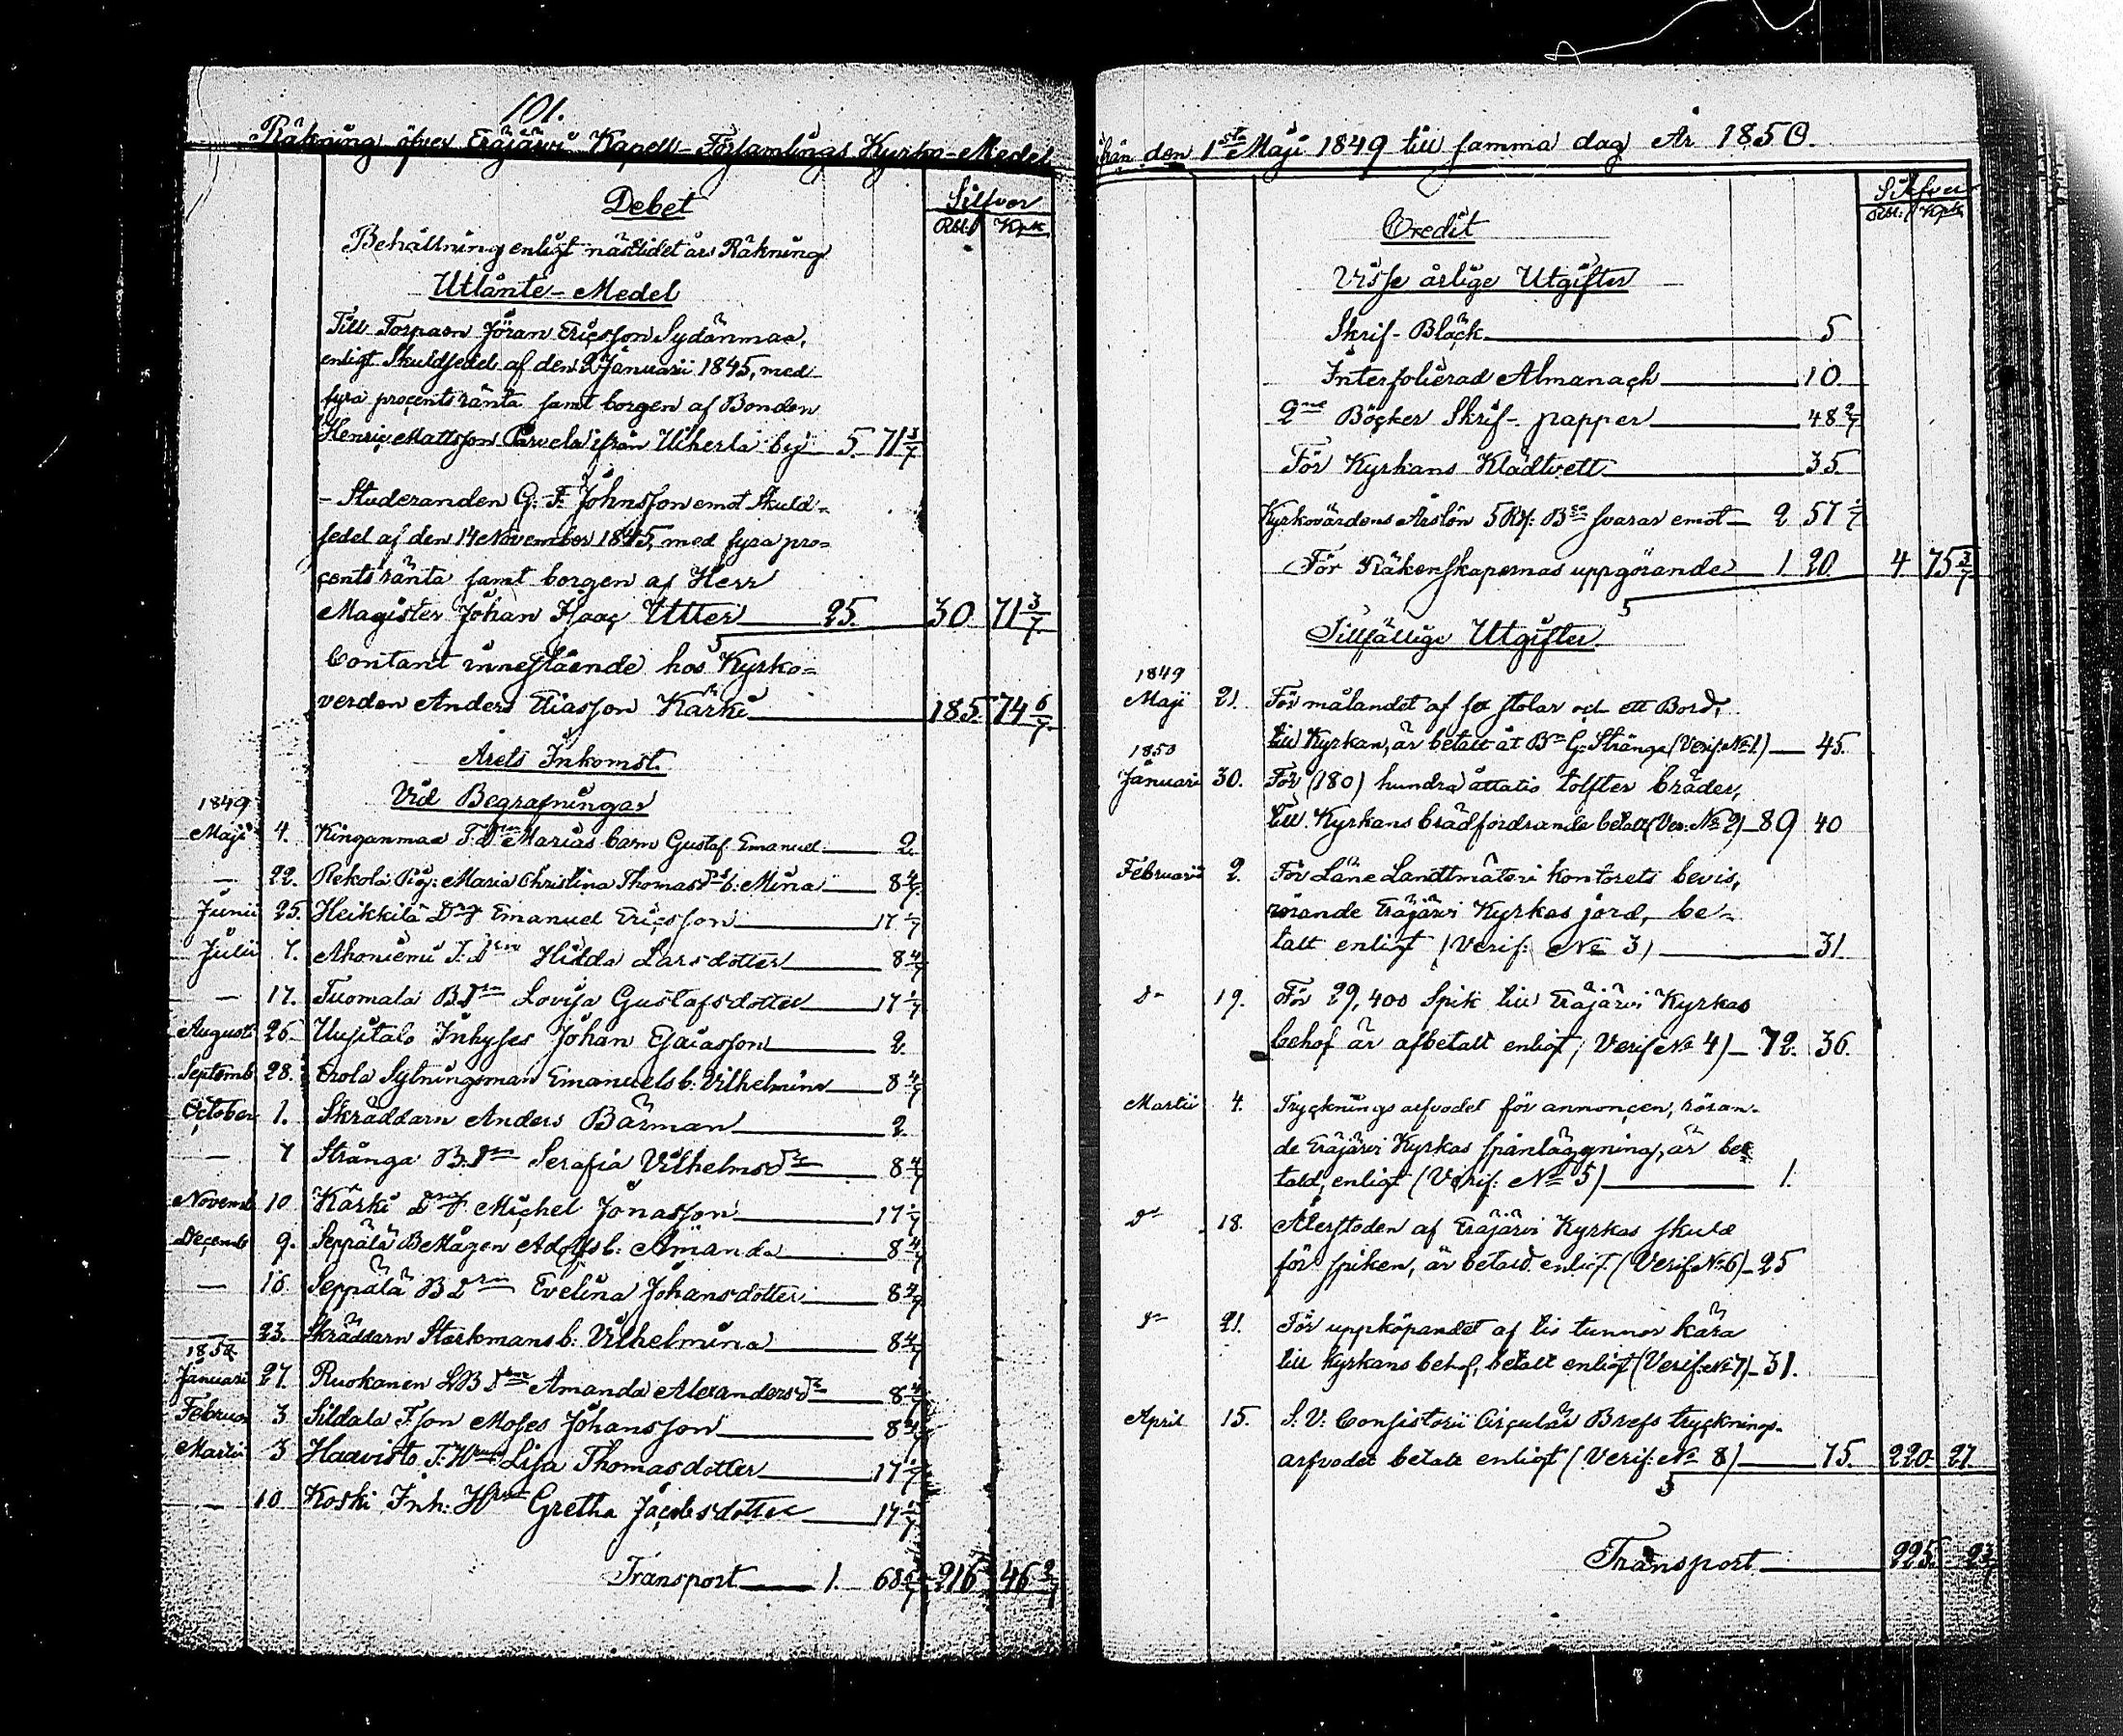 101.
Räkning öfver Eräjärvi Kapell-Församlings Kyrko-Medel
Debet
Silfver
Rbl: Kpk
Behållning enligt nästlidet års Räkning
Utlånte-Medel
Till Torparn Jöran Ericsson Sydänmaa,
enligt Skuldsedel af den 2 Januarii 1845, med
fyra procents ränta samt borgen af Bonden
Henric Mattsson Parvela ifrån Uiherla by 5 71 3/7
- Studeranden G: F: Johnsson emot Skuld-
sedel af den 14 November 1845, med fyra pro-
cents ränta samt borgen af Herr
Magister Johan Isaac Utter 25. 30 71 3/7
Contant innestående hos Kyrko-
verden Anders Eliasson Kärki 185. 74 6/7
Årets Inkomst.
Vid Begrafningar
1849
Maji 4. Kinganmaa T.Drn Marias barn Gustaf Emanuel 2.
— 22. Rekola Pig: Maria Christina Thomasdrs b: Mina 8 4/7
Junii 25. Heikkilä Drg Emanuel Ericsson 17 1/7
Julii 7. Ahoniemi T. Drn Hilda Larsdotter 8 4/7
— 17. Tuomala B.Drn Lovisa Gustafsdotter 17 1/7
Augusti 26. Uusitalo Inhyses Johan Esaiasson 2.
Septemb 28. Erola Sytningsman Emanuels b: Vilhelmina 8 4/7
October 1. Skräddarn Anders Bärman 2.
— 7 Stränga B.Drn Serafia Vilhelmsdr 8 4/7
Novemb 10 Kärki Drg Michel Jonasson 17 1/7
Decemb 9. Seppälä BMågen Adolfs b: Amanda 8 4/7
— 16 Seppälä B Drn Evelina Johansdotter 8 4/7
23. Skräddarn Starkmans b: Vilhelmina 8 4/7
1850
Januari 27. Ruokanen LB Drn Amanda Alexandersdr 8 4/7
Februar 3 Sildala T.son Moses Johansson 8 4/7
Martii 3 Haavisto T: Hrun Lisa Thomasdotter 17 1/7
— 10 Koski Inh: Hrun Gretha Jacobsdotter 17 1/7
Transport 1. 68 4/7 216 46 2/7
ifrån den 1sta Maji 1849 till samma dag År 1850.
Silfver
Rbl: Kpk
Credit
Visse årlige Utgifter
Skrif-Bläck 5
Interfolierad Almanach 10
2ne Böcker Skrif-papper 48 2/7
För Kyrkans Klädtvett 35
Kyrkovärdens Årslön 5 Rd: Bco svarar emot 2 57 1/7
För Räkenskapernas uppgörande 1. 20. 4 75 3/7
Tillfällige Utgifter.
1849
Maji 21. För målandet af sex stolar och ett Bord,
till Kyrkan, är betalt åt Bn G: Stränga (Verif: No 1) 45.
1850
Januari 30. För (180) hundra åttatio tolfter bräder,
till Kyrkans brädfordrande betalt (Ver: No 2) 89 40
Februarii 2. För Läne Landtmäteri kontorets bevis,
rörande Eräjärvi Kyrkas jord, be-
talt enligt (Verif: No 3) 31.
Do 19. För 29,400 Spik till Eräjärvi Kyrkas
behof är afbetalt enligt (Verif No 4) 72. 36.
Martii 4. Trycknings arfvodet för annoncen, röran-
de Eräjärvi Kyrkas spånläggning, är be-
tald, enligt (Verif: No 5) 1.
Do 18. Återstoden af Eräjärvi Kyrkas skuld
för spiken, är betald enligt (Verif. No 6) 25
Do 21. För uppköpandet af tio tunnor kära
till Kyrkans behof, betalt enligt (Verif: No 7) 31.
April 15. S: V: Consistorii Circulär Brefs trycknings-
arfvodet betalt enligt (Verif: No 8) 75. 220. 27.
Transport 225. 2 3/7